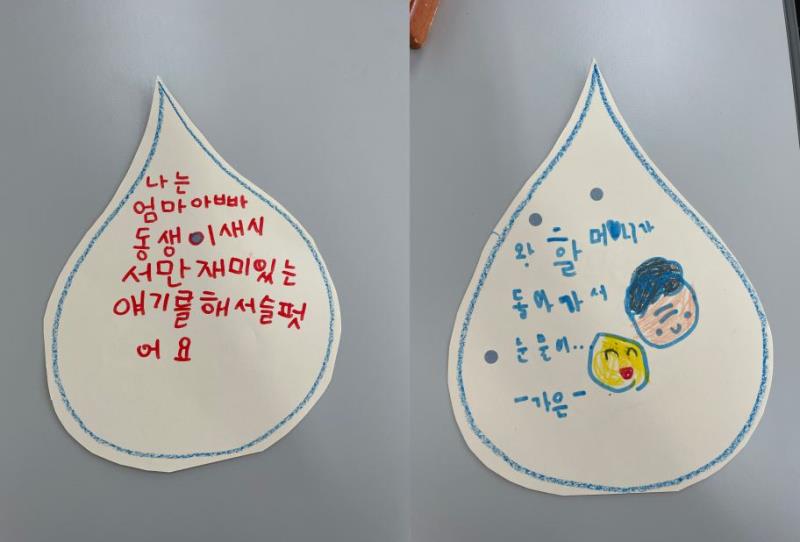 나는
엄마아빠
동생이새시
서만재미있는
얘기를해서슬펏
어요
왕할머니가
돌아가서
눈물이..
-가은-